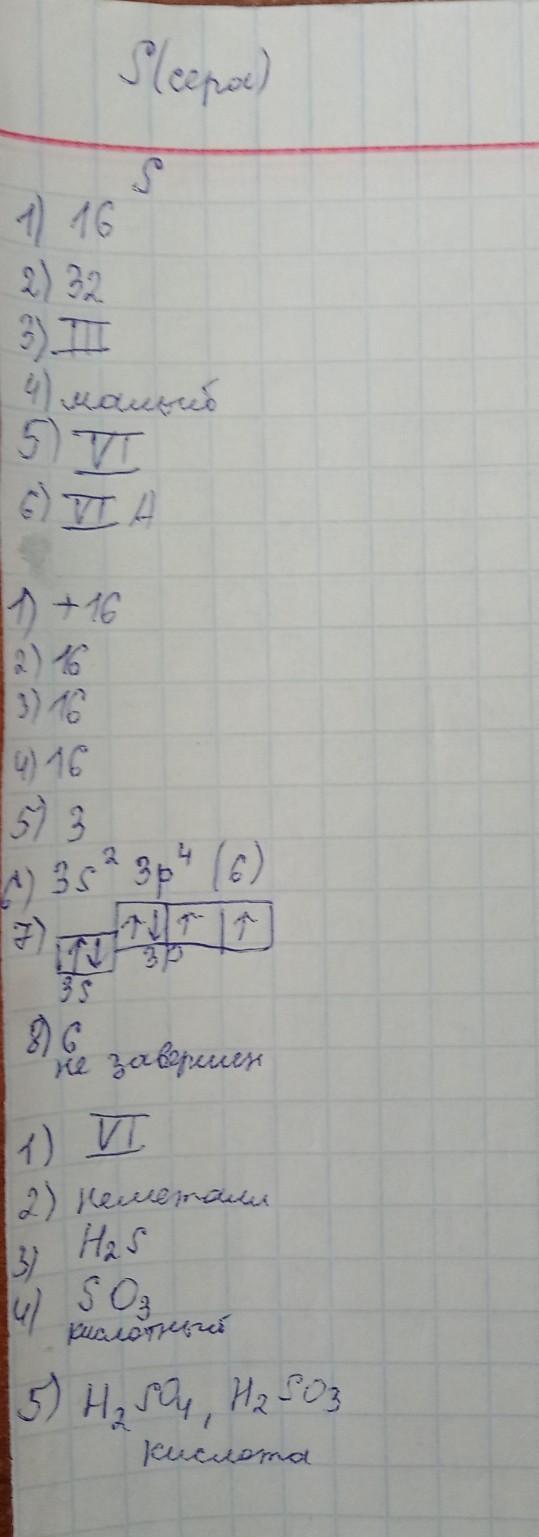 S(сера)
S
1) 16
2) 32
3) III
4) малый
5) VI
6) VI A
1) +16
2) 16
3) 16
4) 16
5) 3
6) 3s² 3p⁴ (6)
7) ↑↓ ↑↓ ↑ ↑
3s 3p
8) 6
не завершен
1) VI
2) неметалл
3) H₂S
4) SO₃
кислотный
5) H₂SO₄, H₂SO₃
кислота